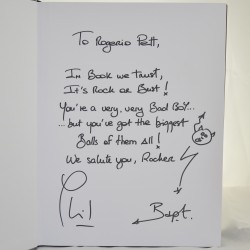 To Rogerio Pratt,
In Book we trust,
It's Rock or Bust!
You're a very, very Bad Boy...
...but you've got the biggest
Balls of them All!
We salute you, Rocker
Phil
Bapt.